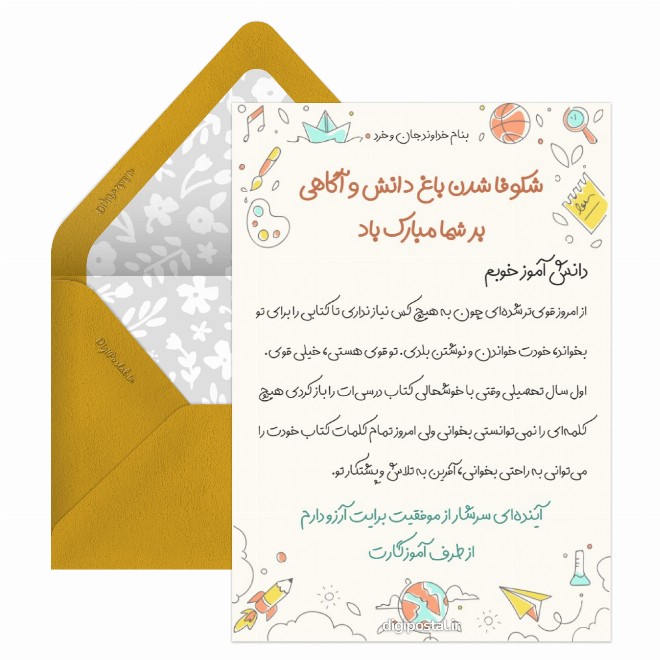 بنام خداوند جان و خرد
شکوفا شدن باغ دانش و آگاهی
بر شما مبارک باد
دانش آموز خوبم
از امروز قوی‌تر شده‌ای چون به هیچ کس نیاز نداری تا کتابی را برای تو
بخواند، خودت خواندن و نوشتن بلدی. تو قوی هستی، خیلی قوی.
اول سال تحصیلی وقتی با خوشحالی کتاب درسی‌ات را باز کردی هیچ
کلمه‌ای را نمی‌توانستی بخوانی ولی امروز تمام کلمات کتاب خودت را
می‌توانی به راحتی بخوانی، آفرین به تلاش و پشتکار تو.
آینده‌ای سرشار از موفقیت برایت آرزو دارم
از طرف آموزگارت
digipostal.ir
DigiPostal.ir